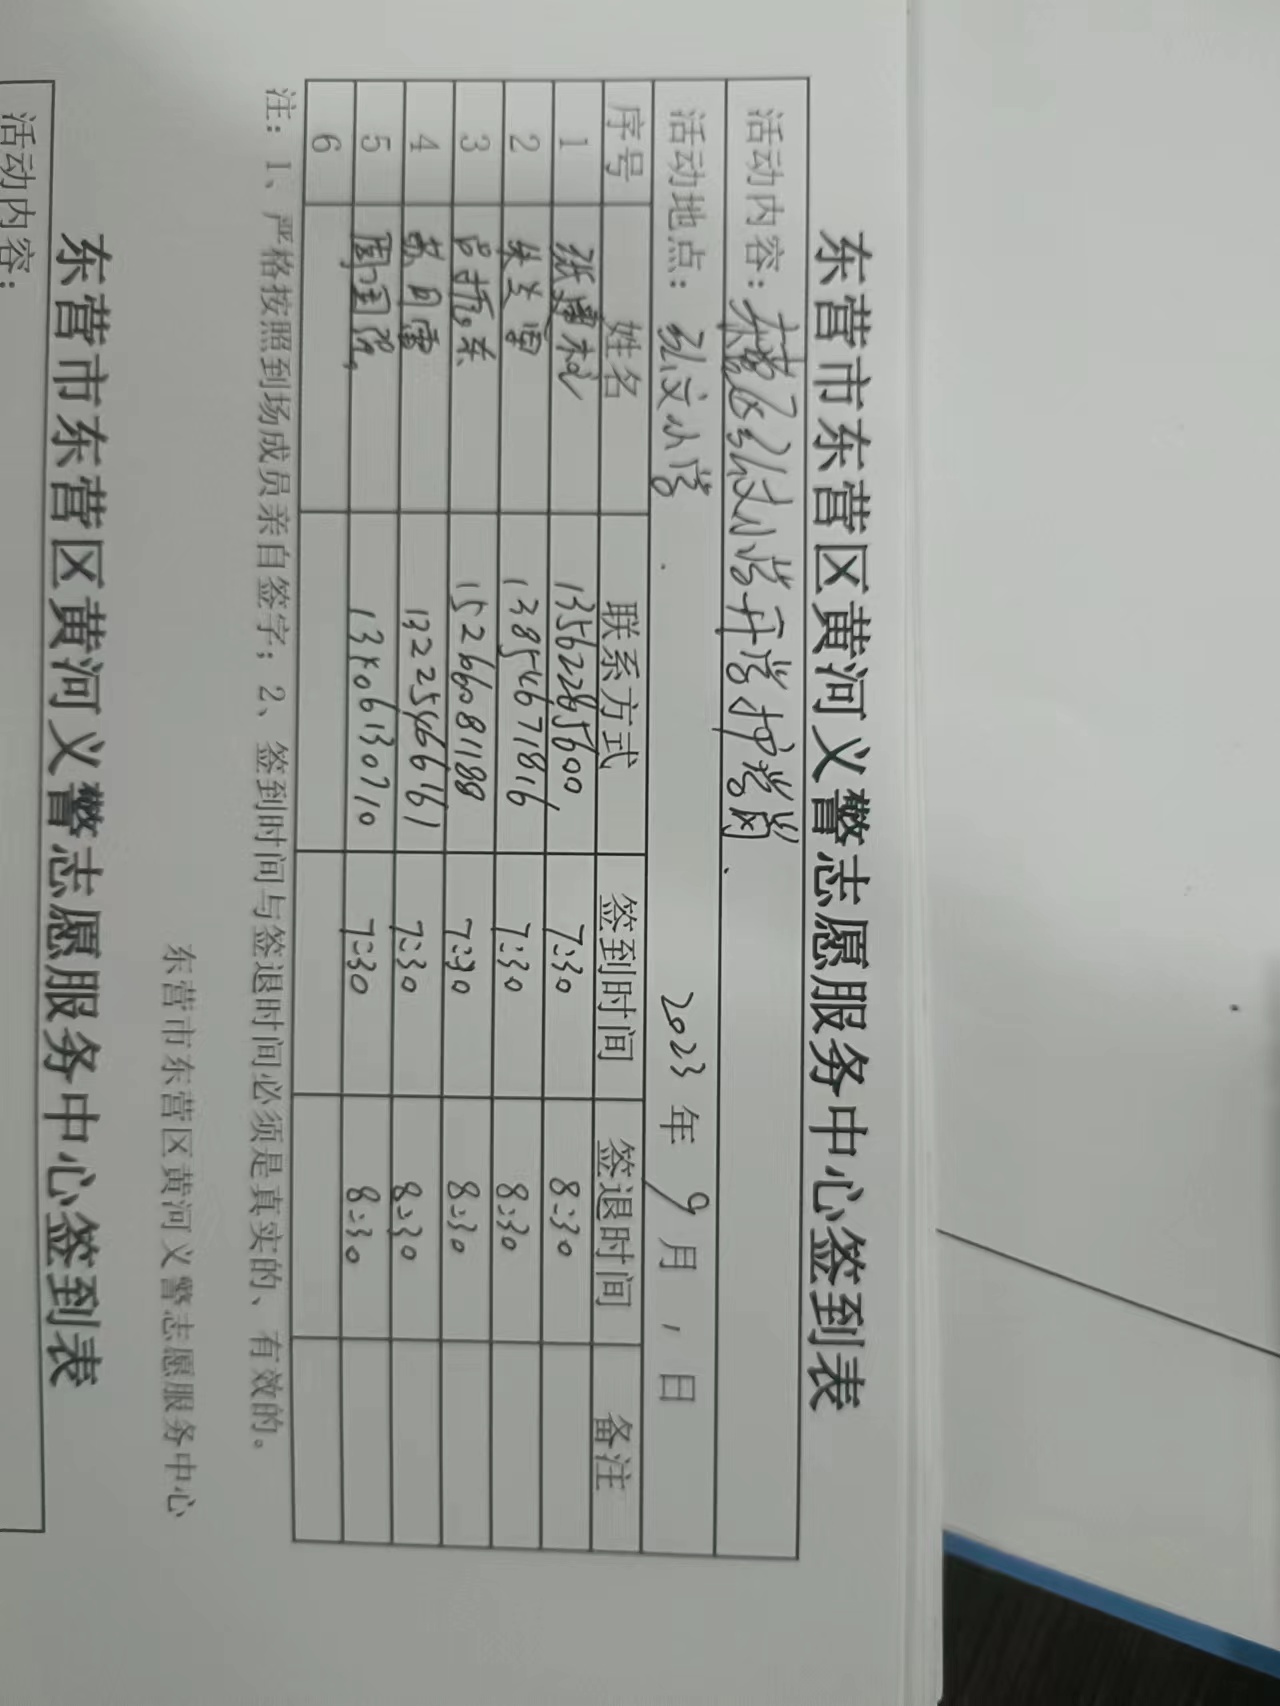 东营市东营区黄河义警志愿服务中心签到表
活动内容：东营区弘文小学开学护学岗.
活动地点：弘文小学. 2023年9月1日
序号 姓名 联系方式 签到时间 签退时间 备注
1 13562285600 7:30 8:30
2 13854671816 7:30 8:30
3 吕振东 15266081188 7:30 8:30
4 苏月雷 13225466161 7:30 8:30
5 周国强 7:30 8:30
6
注：1、严格按照到场成员亲自签字；2、签到时间与签退时间必须是真实的、有效的。
东营市东营区黄河义警志愿服务中心
东营市东营区黄河义警志愿服务中心签到表
活动内容：